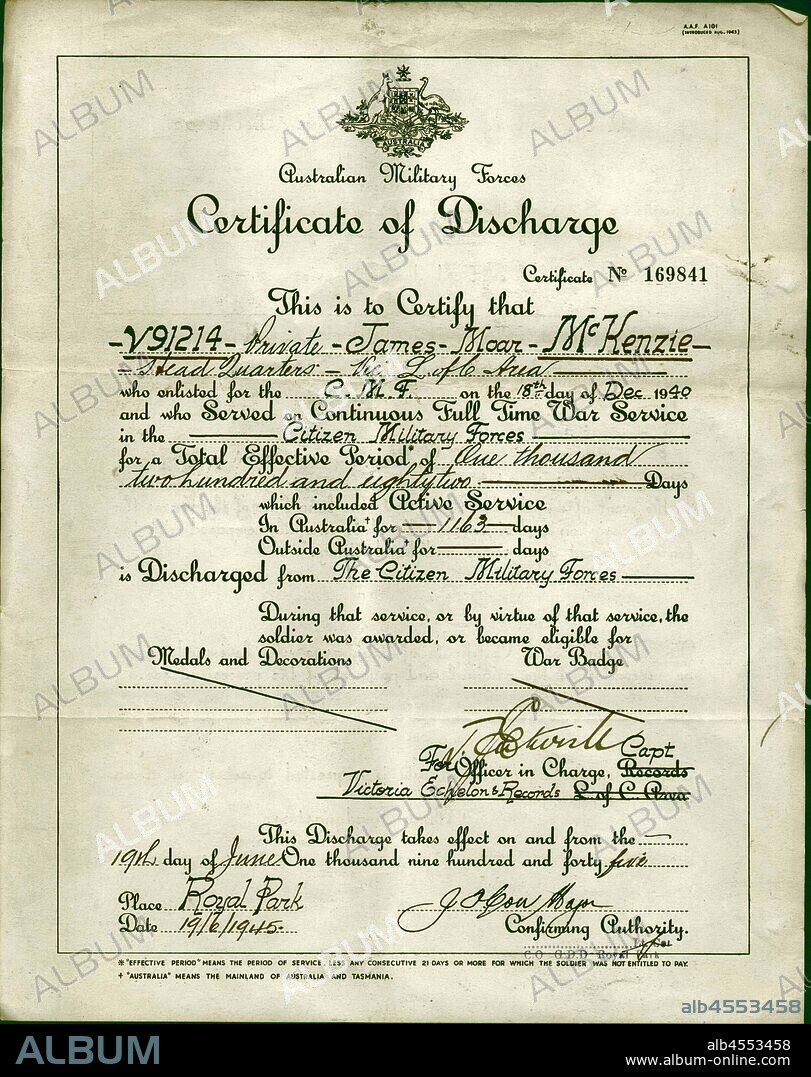 A.A.F. A101
(INTRODUCED AUG. 1943)
AUSTRALIA
Australian Military Forces
Certificate of Discharge
Certificate No 169841
This is to Certify that
-V91214- Private - James - Moar - McKenzie -
- Head Quarters - Vic L of C Area
who enlisted for the C. M. F. on the 18th day of Dec 1940
and who Served on Continuous Full Time War Service
in the Citizen Military Forces
for a Total Effective Period* of One thousand
two hundred and eighty two Days
which included Active Service
In Australia† for 1163 days
Outside Australia† for days
is Discharged from The Citizen Military Forces
During that service, or by virtue of that service, the
soldier was awarded, or became eligible for
Medals and Decorations War Badge
Capt
For Officer in Charge, Records
Victoria Echelon & Records L. of C. Area
This Discharge takes effect on and from the
19th day of June One thousand nine hundred and forty five
Place Royal Park
Date 19/6/1945.
Major
Confirming Authority.
C.O. G.D.D. Royal Park
* "EFFECTIVE PERIOD" MEANS THE PERIOD OF SERVICE, LESS ANY CONSECUTIVE 21 DAYS OR MORE FOR WHICH THE SOLDIER WAS NOT ENTITLED TO PAY.
† "AUSTRALIA" MEANS THE MAINLAND OF AUSTRALIA AND TASMANIA.
alb4553458
ALBUM
alb4553458
www.album-online.com